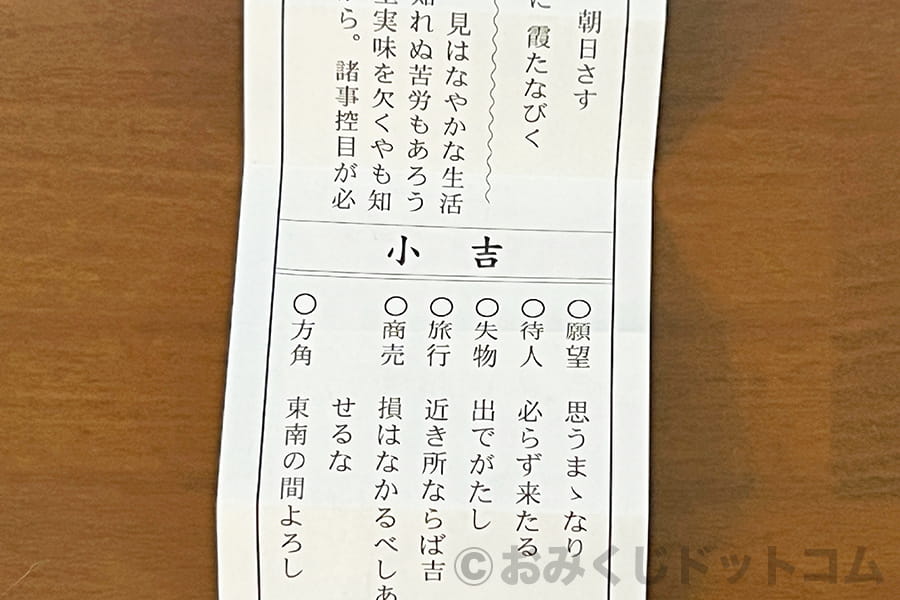 朝日さす
に 霞たなびく
見はなやかな生活
知れぬ苦労もあろう
実味を欠くやも知
ら。諸事控目が必
小吉
○願望 思うまゝなり
○待人 必らず来たる
○失物 出でがたし
○旅行 近き所ならば吉
○商売 損はなかるべしあ
せるな
○方角 東南の間よろし
©おみくじドットコム